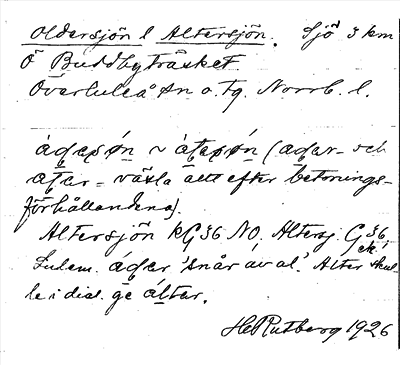 Oldersjön l Altersjön. Sjö 3 km
Ö Buddbyträsket
Överluleå sn o. tg. Norrb. l.
àgesøn ~ àtesøn (agar- och
atar- växla allt efter betonings-
förhållandena).
Altersjön kG 36 NO. Altersj. G 36
ek.
Indem. ágar 'snår av al'. Alter skul-
le i dial. ge áltar.
H Rutberg 1926